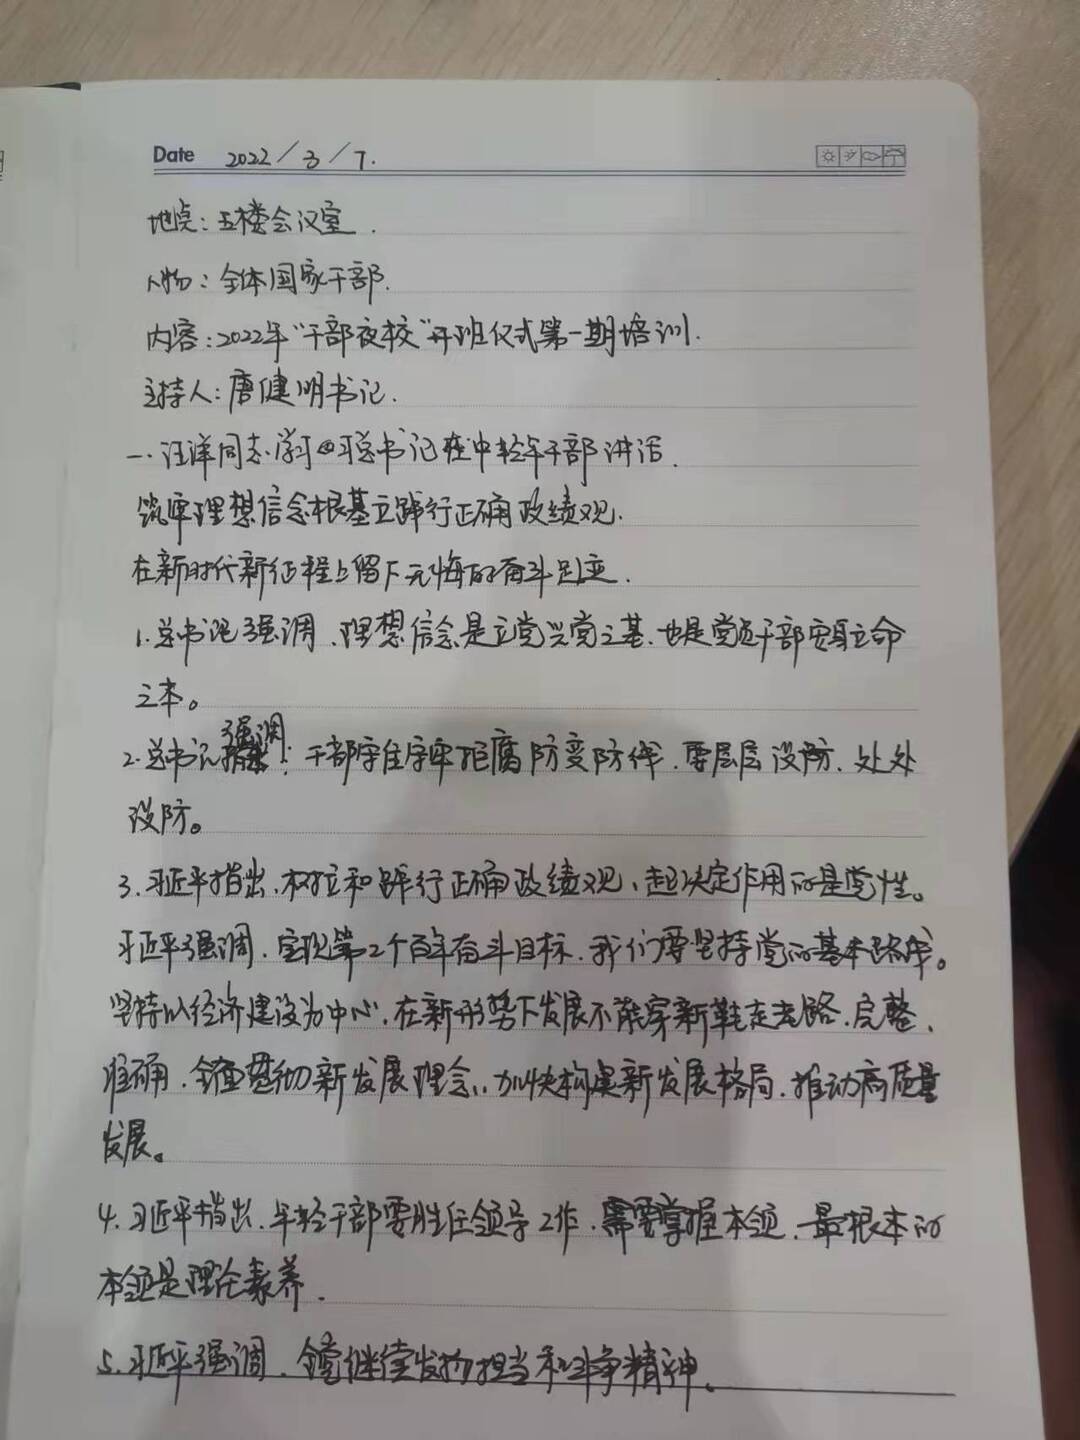 Date 2022/3/7.
地点：五楼会议室.
人物：全体国家干部.
内容：2022年"干部夜校"开班仪式第一期培训.
主持人：唐健明书记.
一.汪洋同志学习总书记在中轻年干部讲话.
筑牢理想信念根基立践行正确政绩观.
在新时代新征程上留下无悔的奋斗足迹.
1.总书记强调、理想信念是立党兴党之基、也是党员干部安身立命
之本。
2.总书记强调：干部守住守牢拒腐防变防线、要层层设防、处处
设防。
3.习近平指出、树立和践行正确政绩观、起决定作用的是党性。
习近平强调、实现第2个百年奋斗目标、我们要坚持党的基本路线。
坚持以经济建设为中心、在新形势下发展不能穿新鞋走老路、完整、
准确、全面贯彻新发展理念、加快构建新发展格局、推动高质量
发展。
4.习近平指出、年轻干部要胜任领导工作、需要掌握本领、最根本的
本领是理论素养.
5.习近平强调、全党继续发扬担当和斗争精神、